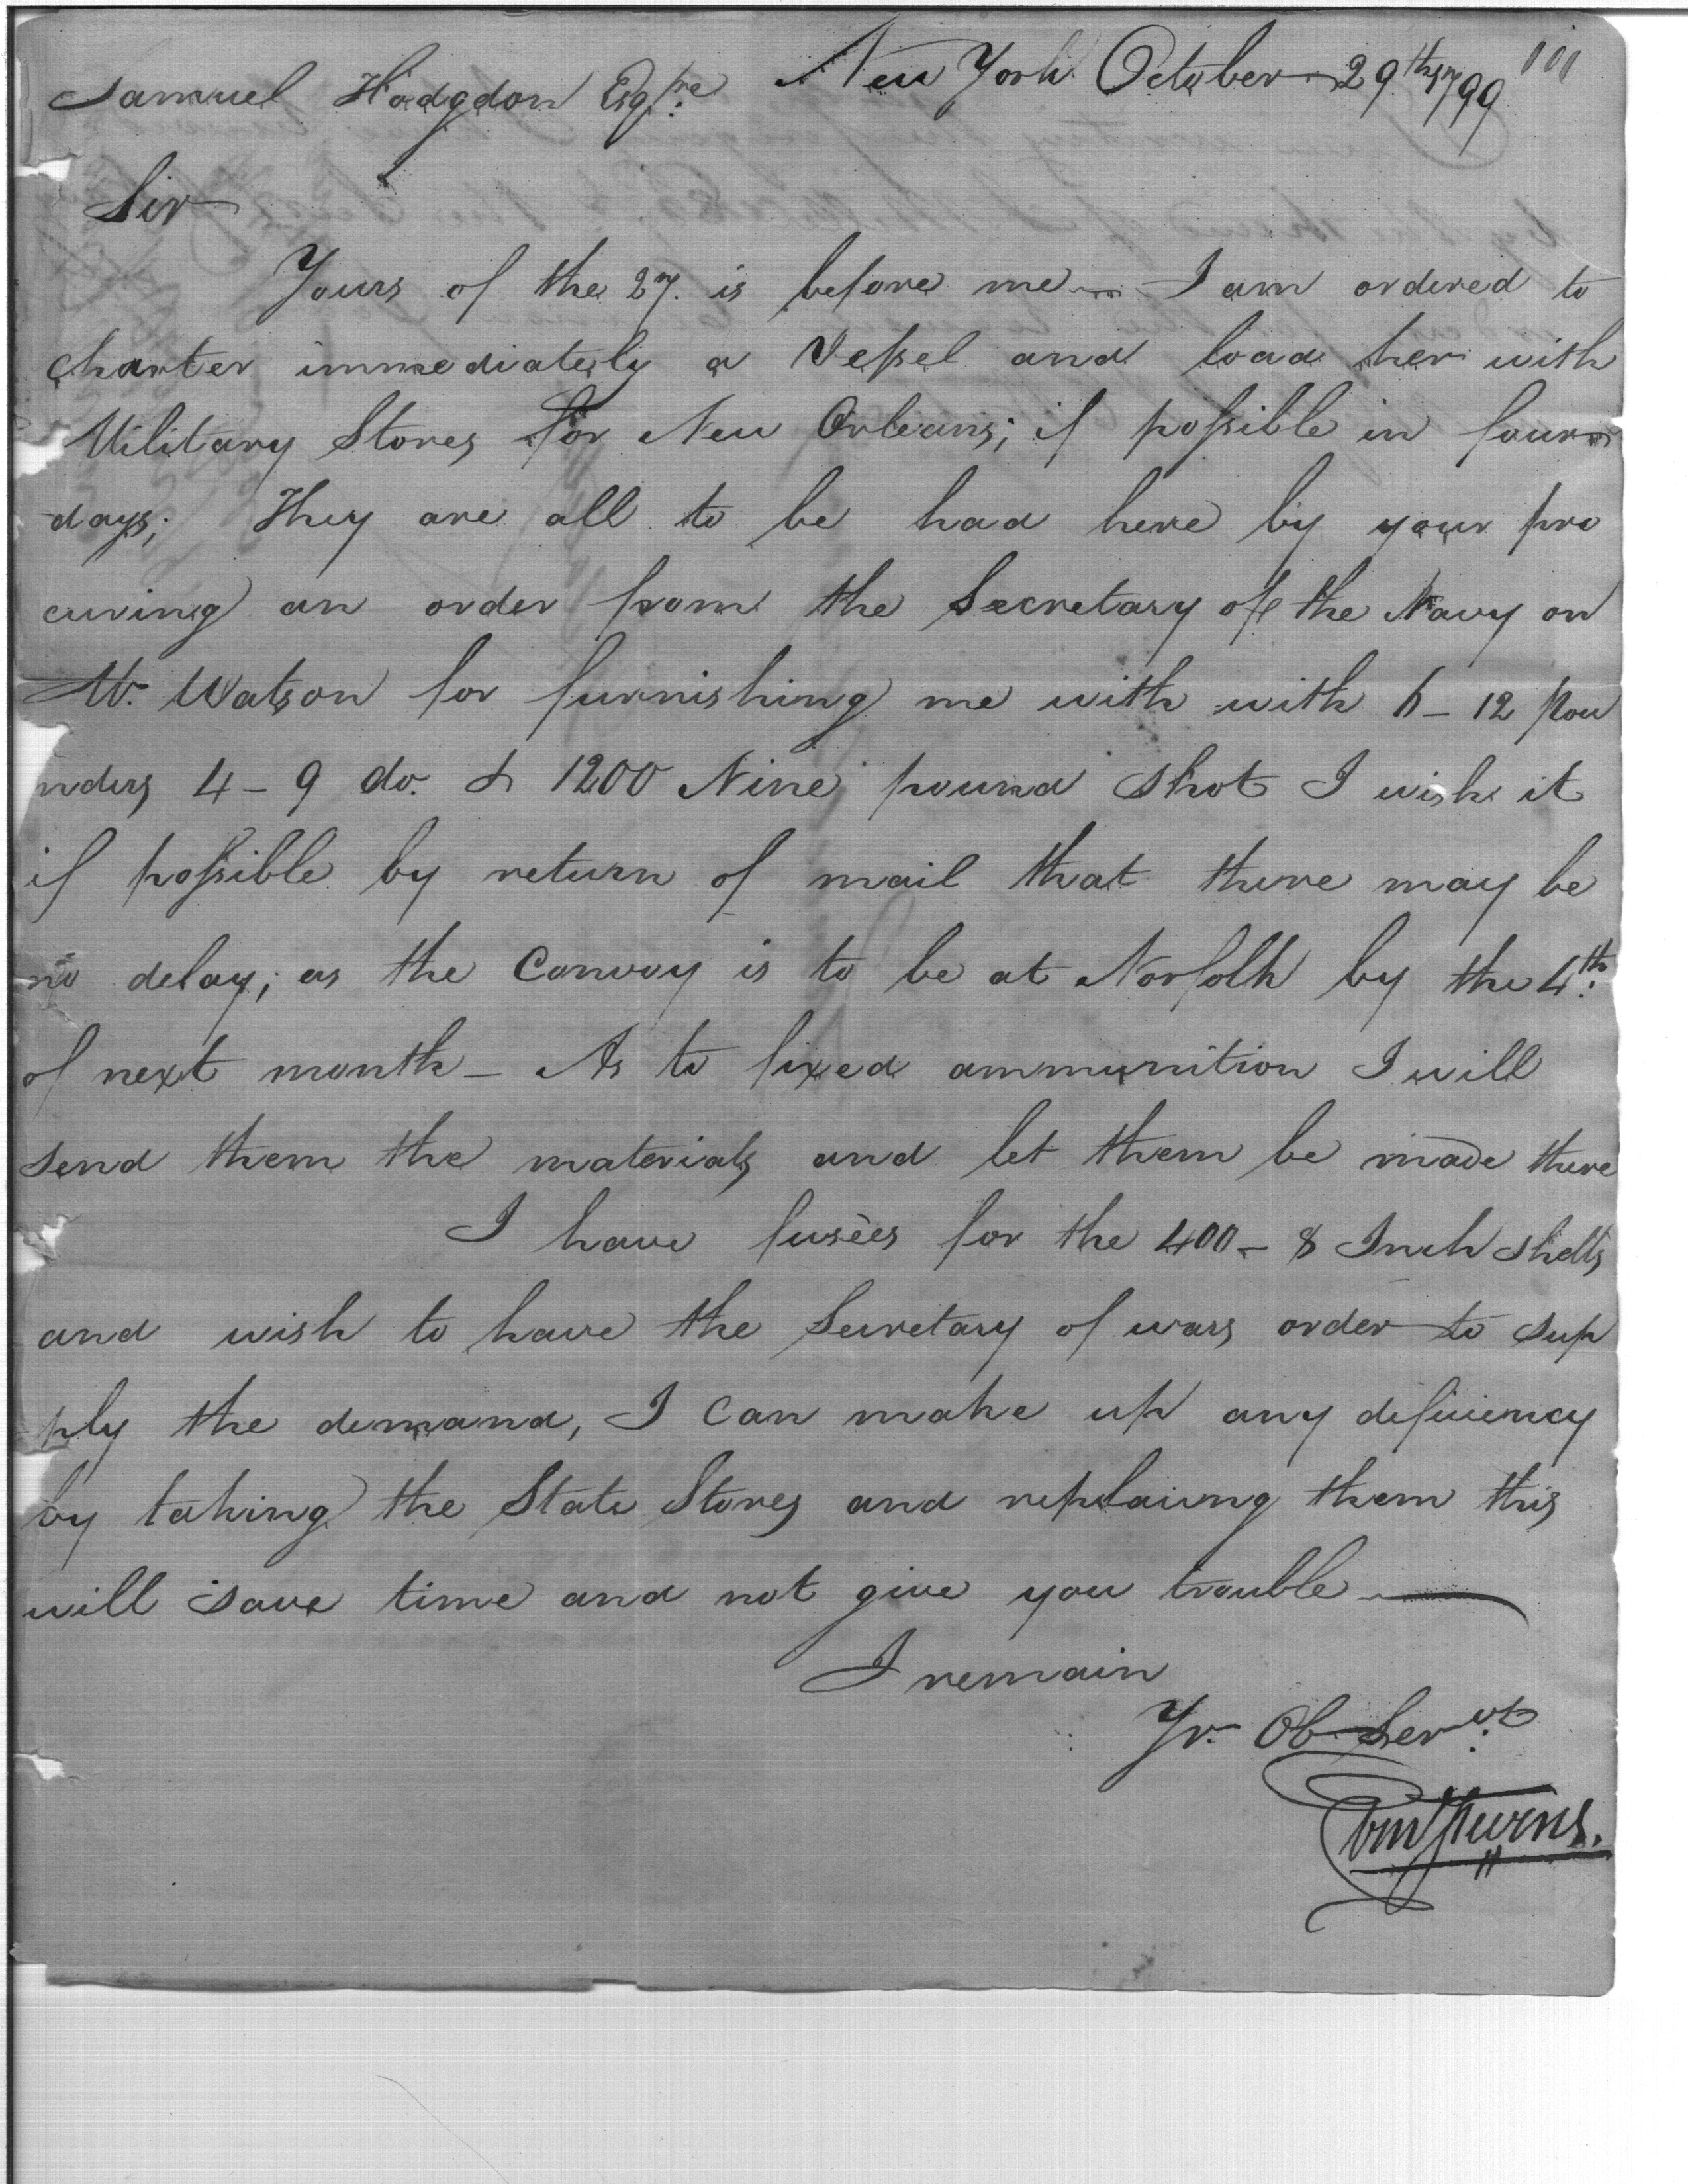 New York October 29th 1799
Samuel Hodgdon Esqre
Sir
Yours of the 27. is before me — I am ordered to
charter immediately a Vessel and load her with
Military Stores for New Orleans; if possible in four
days; They are all to be had here by your pro
curing an order from the Secretary of the Navy on
Mr. Watson for furnishing me with with 6 – 12 pou
nders 4 – 9 do. & 1200 Nine pound shot I wish it
if possible by return of mail that there may be
no delay; as the Convoy is to be at Norfolk by the 4th.
of next month – As to fixed ammunition I will
send them the materials and let them be made there
I have fusèes for the 400 – 8 Inch shells
and wish to have the Secretary of wars order to sup
ply the demand, I can make up any dificiency
by taking the State Stores and replaiung them this
will save time and not give you trouble —
I remain
Yr. Ob Servt.
Stevens.